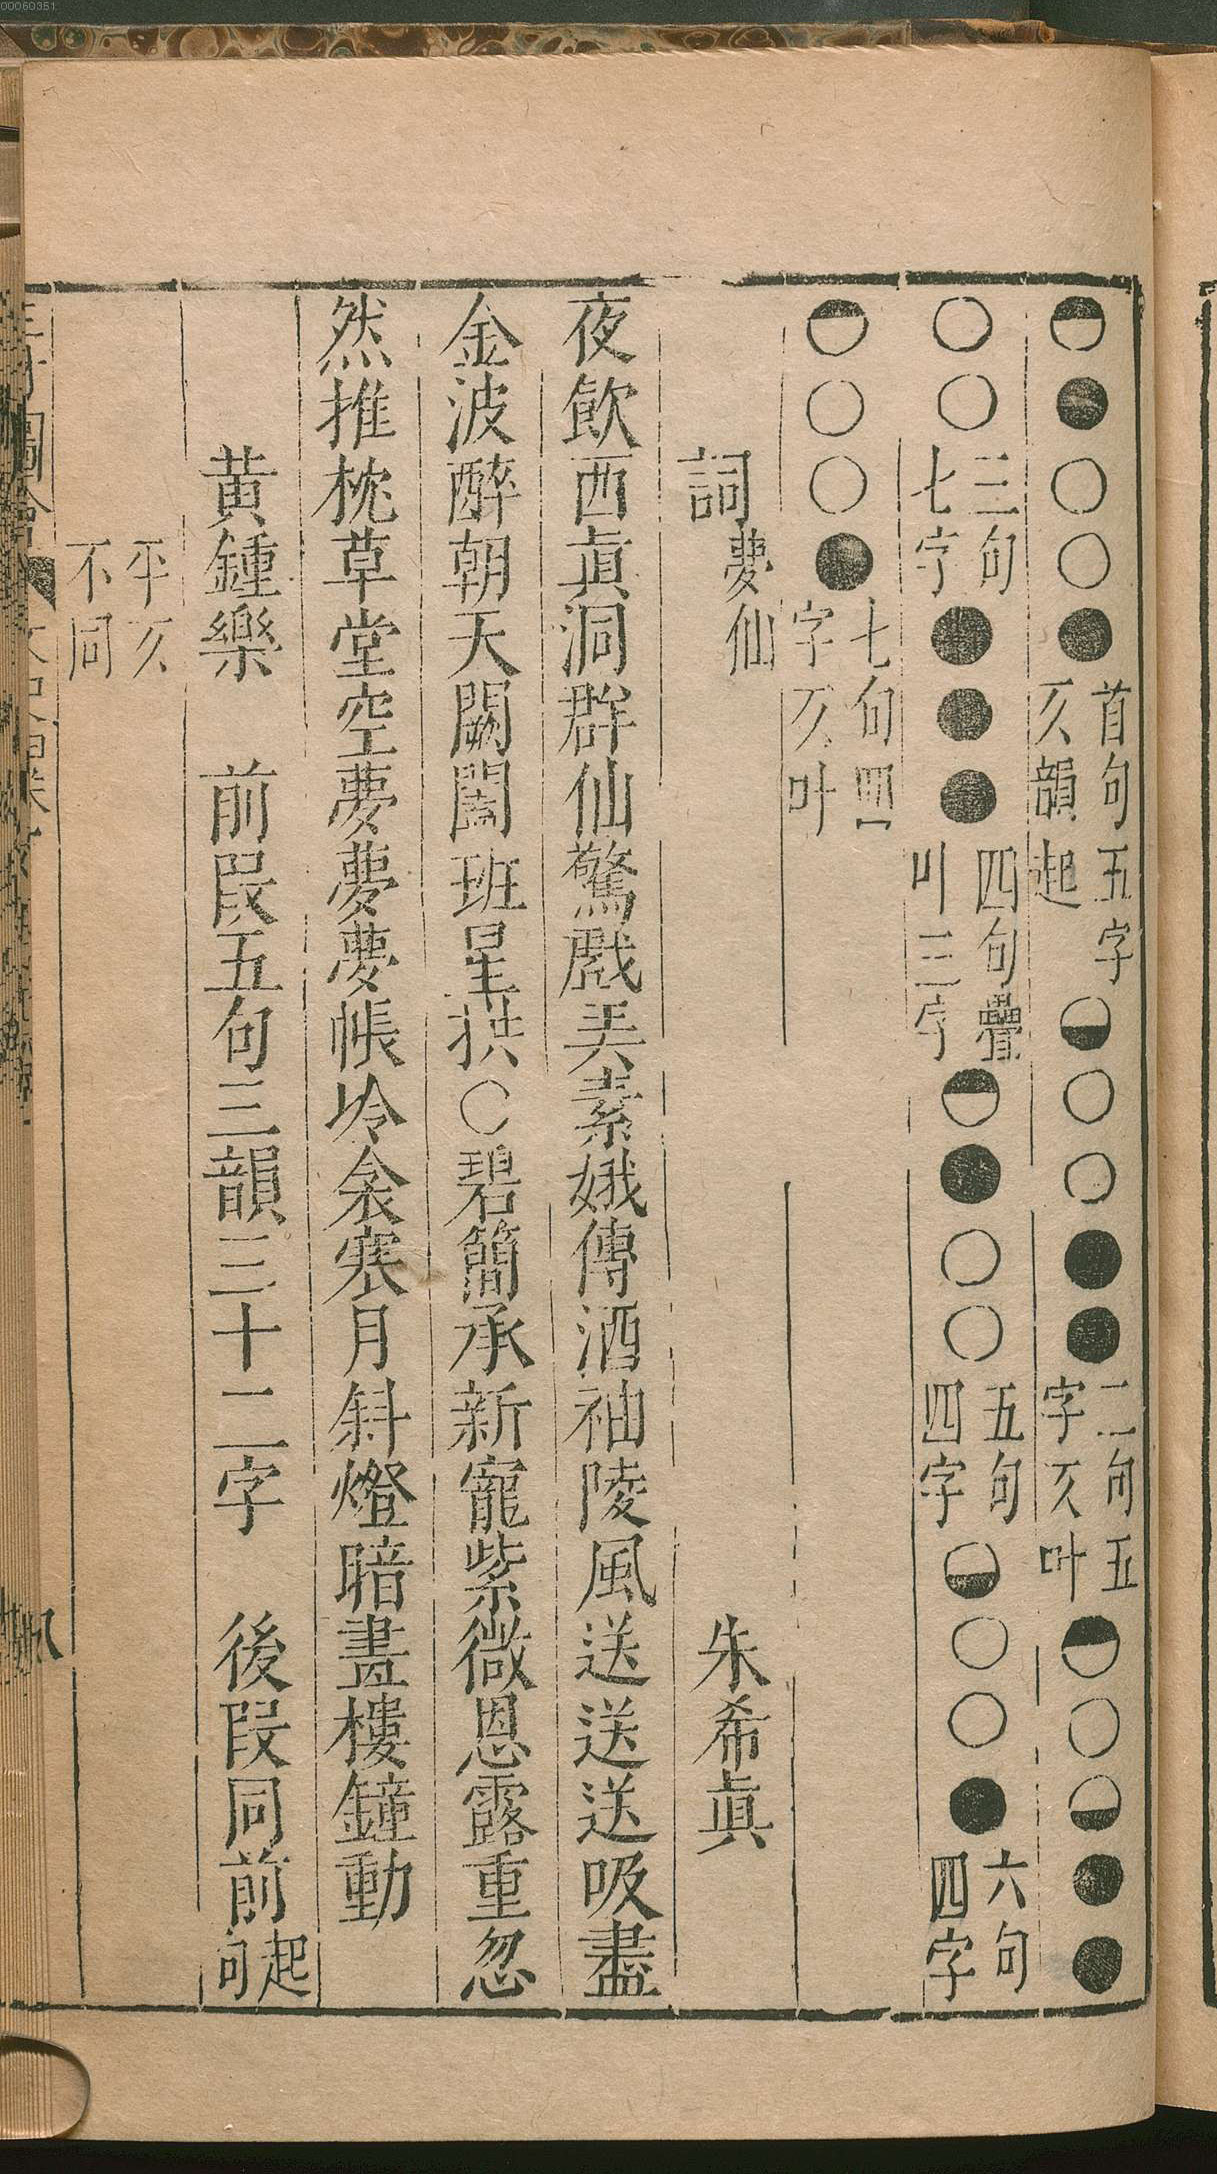 00060351
◓●○○●首句五字仄韻起◒○○●●二句五字仄叶◓○◒●●
○○三句七字●●●四句疊叶三字◓●○○五句四字◒○○●六句四字
◓○○●七句四字仄叶
詞夢仙 朱希眞
夜飲西眞洞群仙驚戲美素娥傳酒袖陵風送送送吸盡
金波醉朝天闕闔班星拱○碧簡承新寵紫微恩露重忽
然推枕草堂空夢夢夢帳冷衾寒月斜燈暗畫樓鐘動
黄鍾樂 前段五句三韻三十二字 後段同前起句
平仄不同